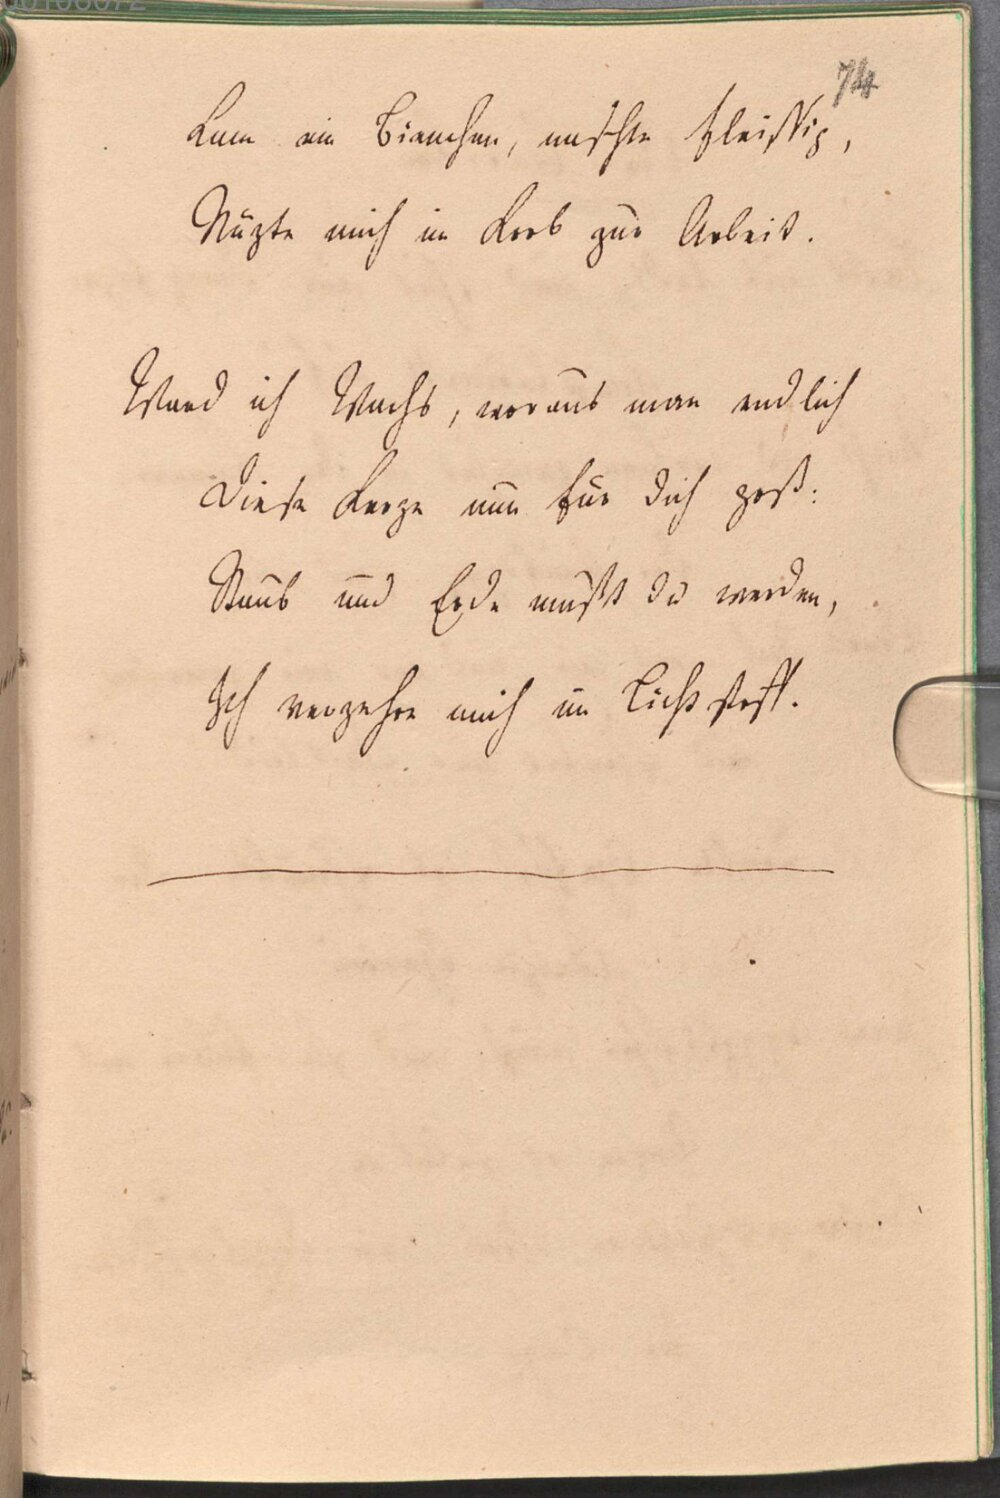 74
Kam ein Bienchen, naschte fleißig,
Nüzte mich im Korb zur Arbeit.
Ward ich Wachs, woraus man endlich
Diese Kerze nun für dich goß:
Staub und Erde mußt du werden,
Ich verzehre mich im Lichtstoff.